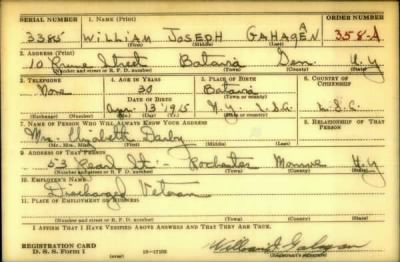 SERIAL NUMBER 1. NAME (Print) ORDER NUMBER
3385 WILLIAM JOSEPH GAHAGAN 358-A
(First) (Middle) (Last)
2. ADDRESS (Print)
10 Prune Street Batavia Gen. N.Y.
(Number and street or R. F. D. number) (Town) (County) (State)
3. TELEPHONE 4. AGE IN YEARS 5. PLACE OF BIRTH 6. COUNTRY OF CITIZENSHIP
None 30 Batavia
DATE OF BIRTH (Town or county)
Apr. 13 1915 N.Y. U.S.A. U.S.A.
(Exchange) (Number) (Mo.) (Day) (Yr.) (State or country)
7. NAME OF PERSON WHO WILL ALWAYS KNOW YOUR ADDRESS 8. RELATIONSHIP OF THAT PERSON
Mrs. Elizabeth Darby
(Mr., Mrs., Miss) (First) (Middle) (Last)
9. ADDRESS OF THAT PERSON
53 Pearl St. - Rochester Monroe N.Y.
(Number and street or R. F. D. number) (Town) (County) (State)
10. EMPLOYER'S NAME
Discharged Veteran
11. PLACE OF EMPLOYMENT OR BUSINESS
(Number and street or R. F. D. number) (Town) (County) (State)
I AFFIRM THAT I HAVE VERIFIED ABOVE ANSWERS AND THAT THEY ARE TRUE.
REGISTRATION CARD
D. S. S. Form 1 (over) William J. Gahagan
(Registrant's signature)